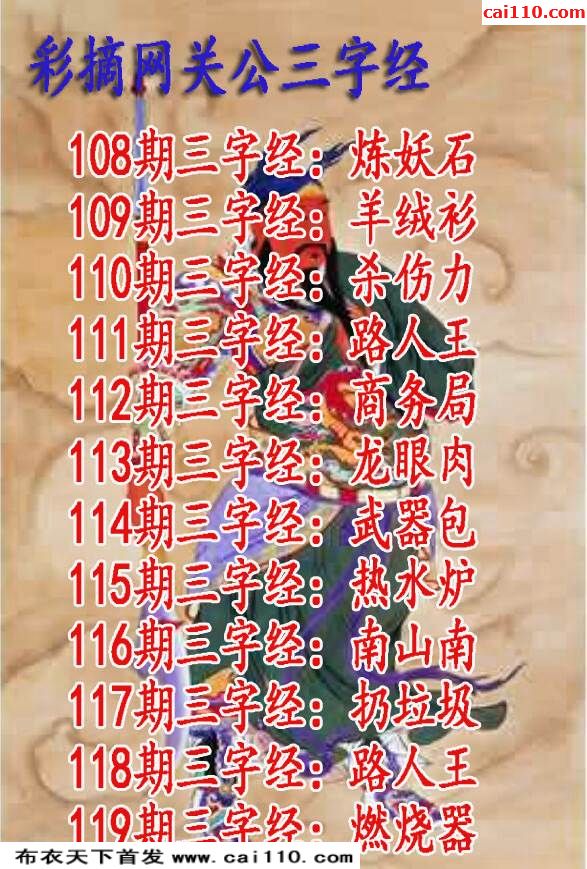 cai110.com
彩摘网关公三字经
108期三字经：炼妖石
109期三字经：羊绒衫
110期三字经：杀伤力
111期三字经：路人王
112期三字经：商务局
113期三字经：龙眼肉
114期三字经：武器包
115期三字经：热水炉
116期三字经：南山南
117期三字经：扔垃圾
118期三字经：路人王
119期三字经：燃烧器
布衣天下首发 www.cai110.com